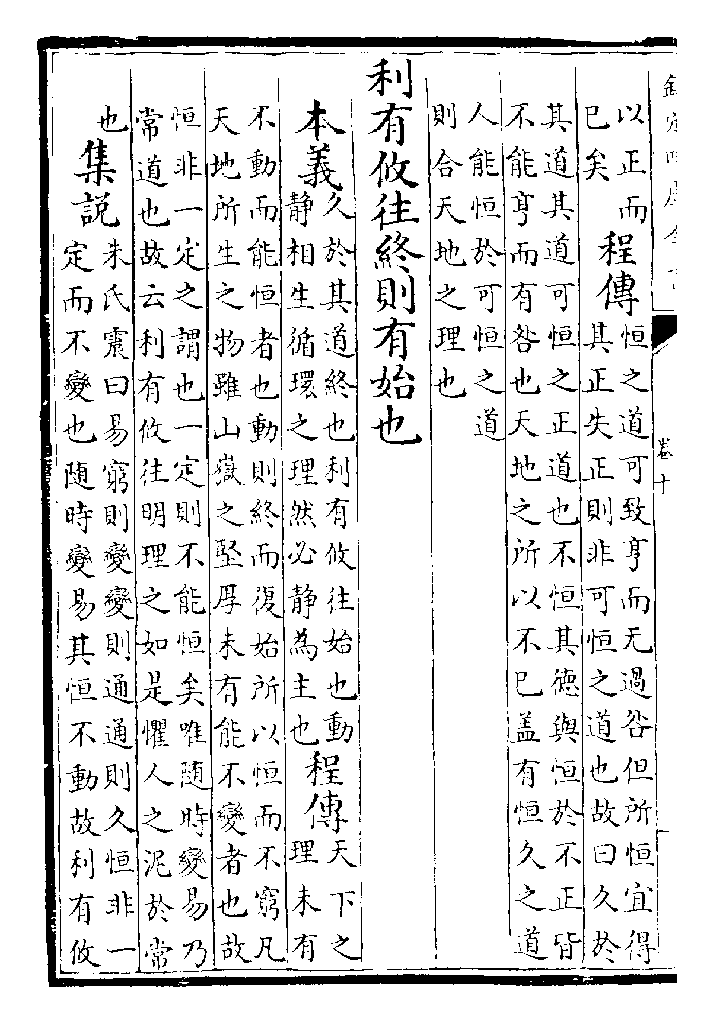 欽定四庫全書
卷十
以正而
已矣
程傳
恒之道可致亨而无過咎但所恒宜得
其正失正則非可恒之道也故曰久於
其道其道可恒之正道也不恒其德與恒於不正皆
不能亨而有咎也天地之所以不已盖有恒久之道
人能恒於可恒之道
則合天地之理也
利有攸往終則有始也
本義
久於其道終也利有攸往始也動
静相生循環之理然必静為主也
程傳
天下之
理未有
不動而能恒者也動則終而復始所以恒而不窮凡
天地所生之物雖山嶽之堅厚未有能不變者也故
恒非一定之謂也一定則不能恒矣唯随時變易乃
常道也故云利有攸往明理之如是懼人之泥於常
也
集説
朱氏震曰易窮則變變則通通則久恒非一
定而不變也随時變易其恒不動故利有攸